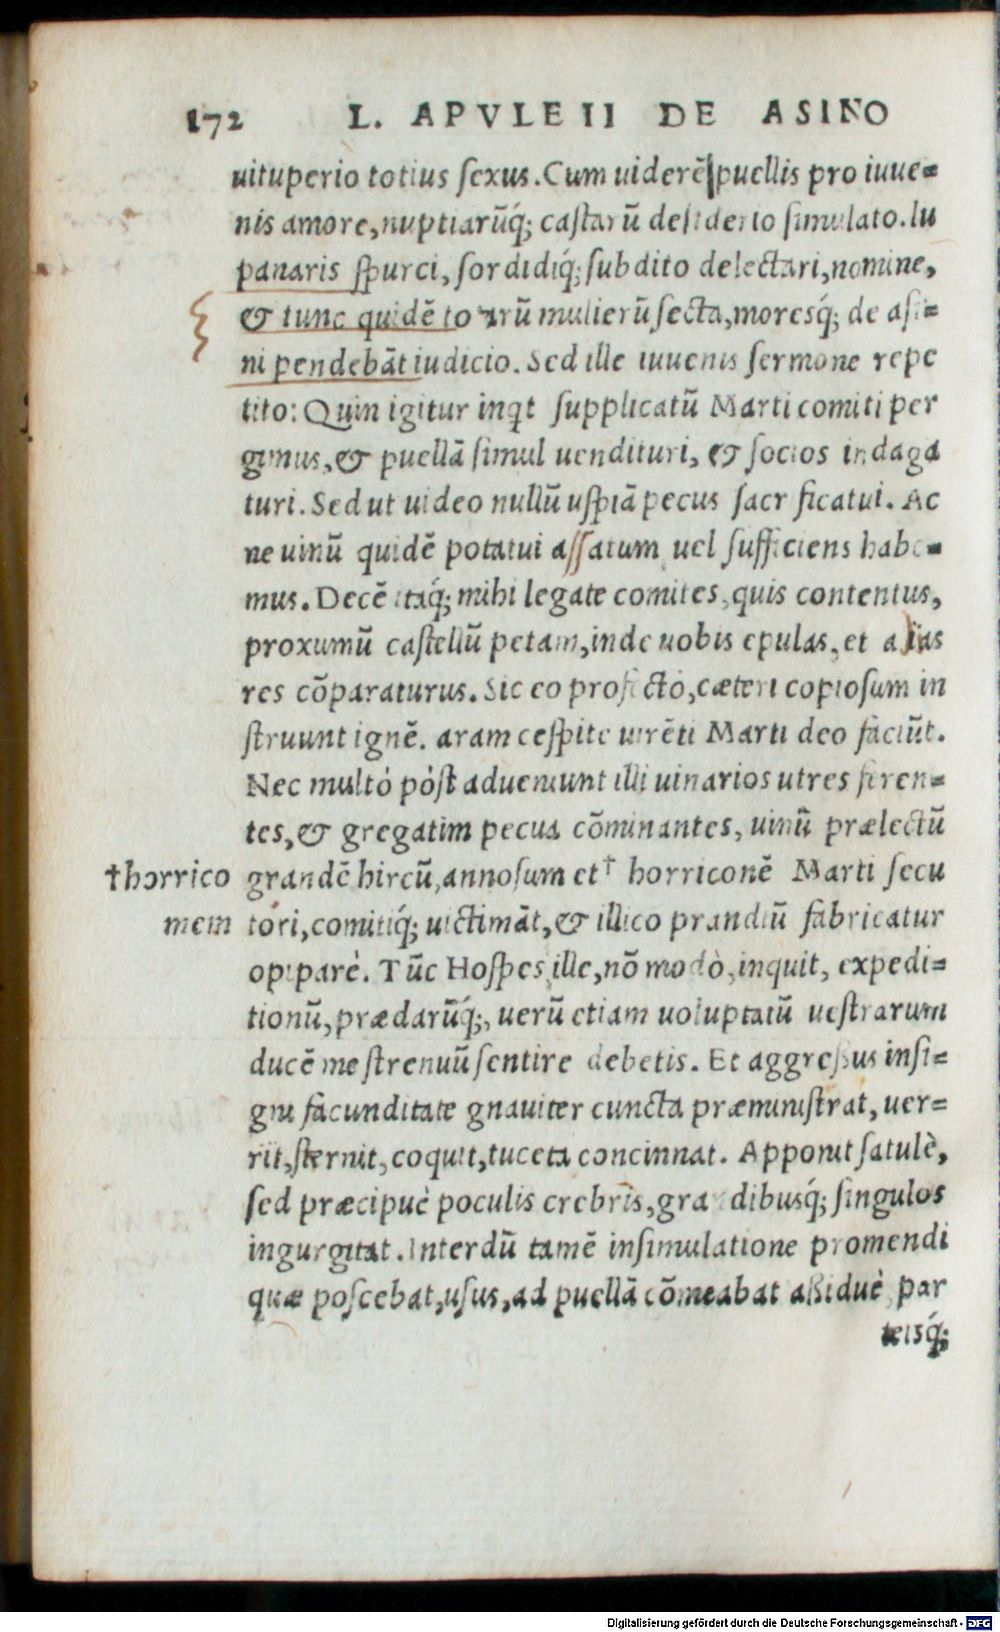 172 L. APVLEII DE ASINO
uituperio totius sexus. Cum uiderē puellis pro iuue=
nis amore, nuptiarūq́; castarū desiderio simulato. lu
panaris spurci, sordidiq́; subdito delectari, nomine,
& tunc quidē totarū mulierū secta, moresq́; de asi=
ni pendebāt iudicio. Sed ille iuuenis sermone repe
tito: Quin igitur inqt supplicatū Marti comiti per
gimus, & puellā simul uendituri, & socios indaga
turi. Sed ut uideo nullū uspiā pecus sacrificatui. Ac
ne uinū quidē potatui assatum uel sufficiens habe=
mus. Decē itaq́; mihi legate comites, quis contentus,
proxumū castellū petam, inde uobis epulas, et alias
res cōparaturus. Sic eo profecto, cæteri copiosum in
struunt ignē. aram cespite uirēti Marti deo faciūt.
Nec multò pòst adueniunt illi uinarios utres feren=
tes, & gregatim pecua cōminantes, uinū prælectū
grandē hircū, annosum et † horriconē Marti secu
†horrico
tori, comitiq́; uictimāt, & illico prandiū fabricatur
mem
opiparè. Tūc Hospes ille, nō modò, inquit, expedi=
tionū, prædarūq́;, uerū etiam uoluptatū uestrarum
ducē me strenuū sentire debetis. Et aggressus insi=
gni facunditate gnauiter cuncta præministrat, uer=
rit, sternit, coquit, tuceta concinnat. Apponit satulè,
sed præcipuè poculis crebris, grandibusq́; singulos
ingurgitat. Interdū tamē insimulatione promendi
quæ poscebat, usus, ad puellā cōmeabat assiduè, par
teisq́;
Digitalisierung gefördert durch die Deutsche Forschungsgemeinschaft - DFG